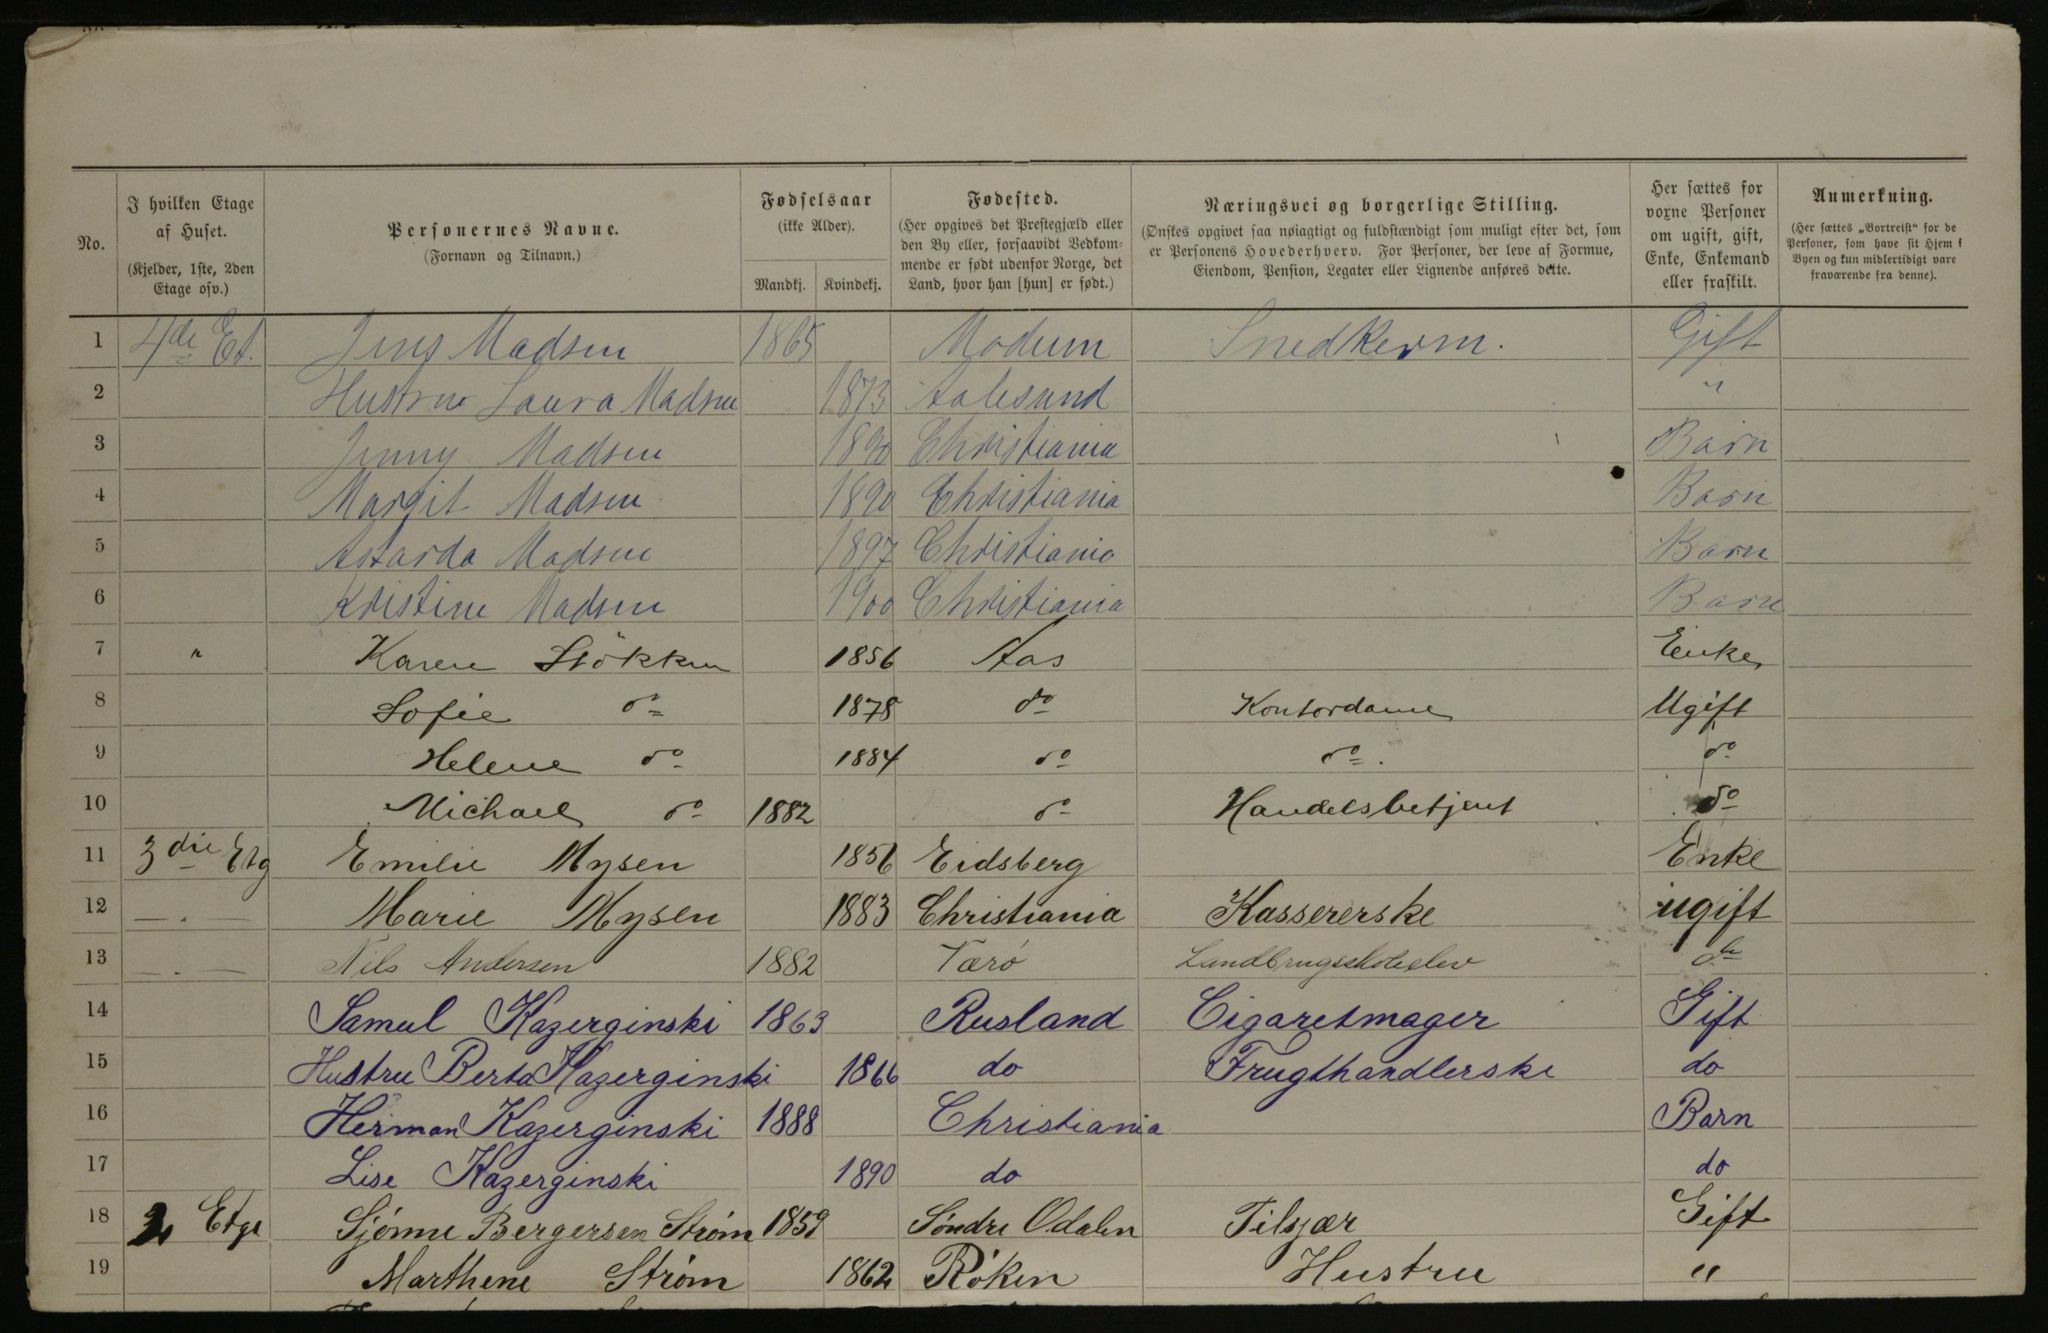 No.
I hvilken Etage af Huset. (Kjelder, 1ste, 2den Etage osv.)
Personernes Navne. (Fornavn og Tilnavn.)
Fødselsaar (ikke Alder). Mandkj. Kvindekj.
Fødested. (Her opgives det Præstegjæld eller den By eller, forsaavidt Vedkommende er født udenfor Norge, det Land, hvor han [hun] er født.)
Næringsvei og borgerlige Stilling. (Ønskes opgivet saa nøiagtigt og fuldstændigt som muligt efter det, som er Personens Hovederhverv. For Personer, der leve af Formue, Eiendom, Pension, Legater eller Lignende anføres dette.
Her sættes for voxne Personer om ugift, gift, Enke, Enkemand eller fraskilt.
Anmerkning. (Her sættes „Bortreist“ for de Personer, som have sit Hjem i Byen og kun midlertidigt vare fraværende fra denne).
1 4de Et. Jens Madsen 1865 Modum Snedkersv. Gift
2 Hustru Laura Madsen 1873 Aalesund "
3 Jenny Madsen 1890 Christiania Barn
4 Margit Madsen 1890 Christiania Barn
5 Madsen 1897 Christiania Barn
6 Kristine Madsen 1900 Christiania Barn
7 " Karen Stökken 1856 Aas Enke
8 Sofie do 1878 do Kontordame Ugift
9 Helene do 1884 do do. do
10 Michael do 1882 do Handelsbetjent do
11 3die Etg Emilie Mysen 1856 Eidsberg Enke
12 — . — Marie Mysen 1883 Christiania Kassererske ugift
13 — . — Nils Andersen 1882 Værö Landbrugsskoleelev do
14 Samul Kazerginski 1863 Rusland Cigaretmager Gift
15 Hustru Berta Kazerginski 1866 do Frugthandlerske do
16 Herman Kazerginski 1888 Christiania Barn
17 Lise Kazerginski 1890 do do
18 2 Etge Sjønne Bergersen Strøm 1859 Søndre Odalen Tilsjær Gift
19 Marthene Strøm 1862 Røken Hustru "